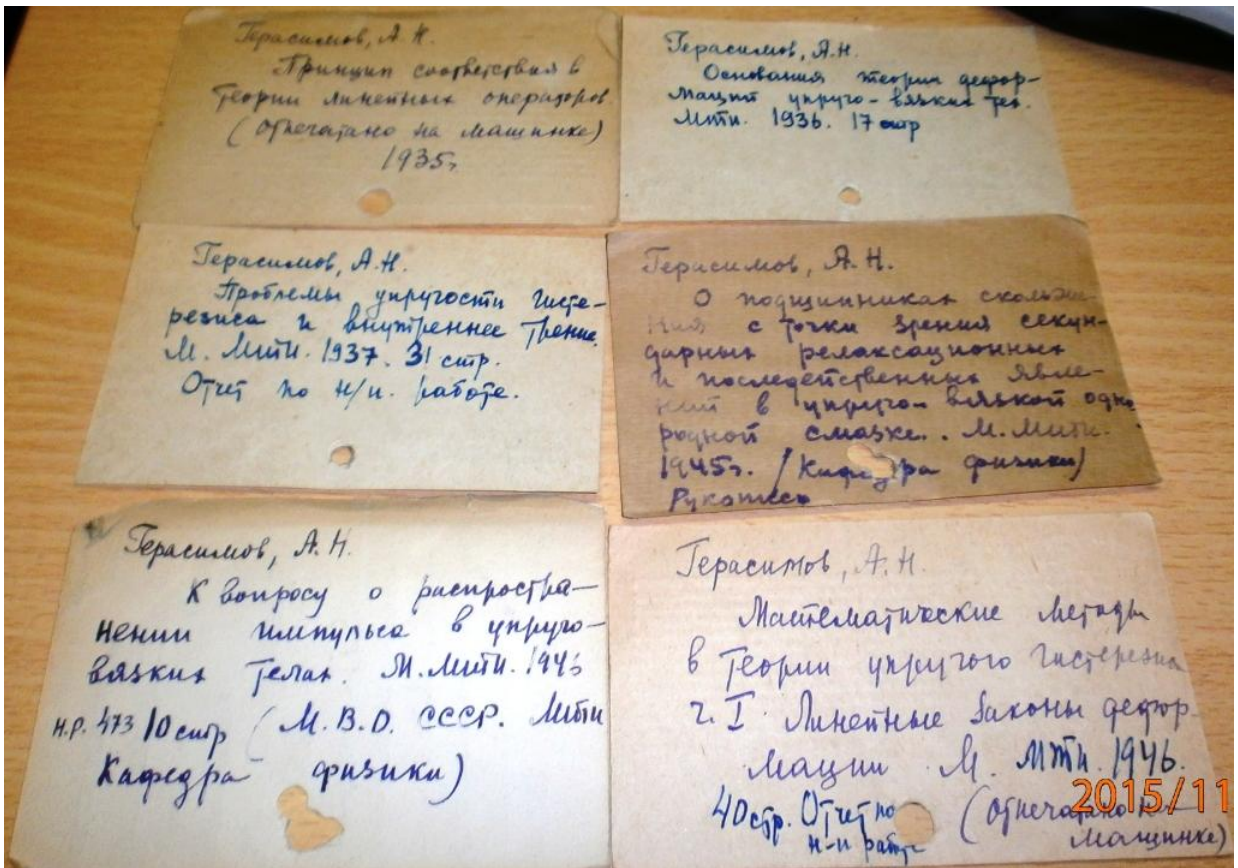 Герасимов, А.Н.
Принцип соответствия в
теории линейных операторов.
(отпечатано на машинке)
1935г
Герасимов, А.Н.
Основания теории дефор-
маций упруго-вязких тел.
Мти. 1936. 17 стр
Герасимов, А.Н.
Проблемы упругости гисте-
резиса и внутреннее трение.
М. Мти. 1937. 31 стр.
Отчет по н/и. работе.
Герасимов, А.Н.
О подшипниках скольже-
ния с точки зрения секун-
дарных релаксационных
и последейственных явле-
ний в упруго-вязкой одно
родной смазке. М. Мти.
1945г. (Кафедра физики)
Рукопись
Герасимов, А.Н.
К вопросу о распростра-
нении импульса в упруго-
вязких телах. М. Мти.
Н.Р. 473 10 стр (М.В.О. СССР. Мти
Кафедра физики)
Герасимов, А.Н.
Математические методы
в теории упругого гистерезиса
ч. I. Линейные законы дефор-
мации М. Мти. 1946.
40 стр. Отчет по (отпечатано на
н-и работе машинке)
2015/11